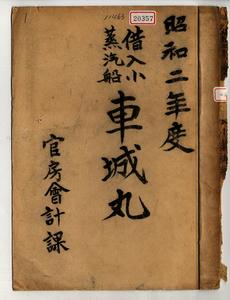 11463
20357
昭和二年度
借入小
蒸汽船
車城丸
官房會計課